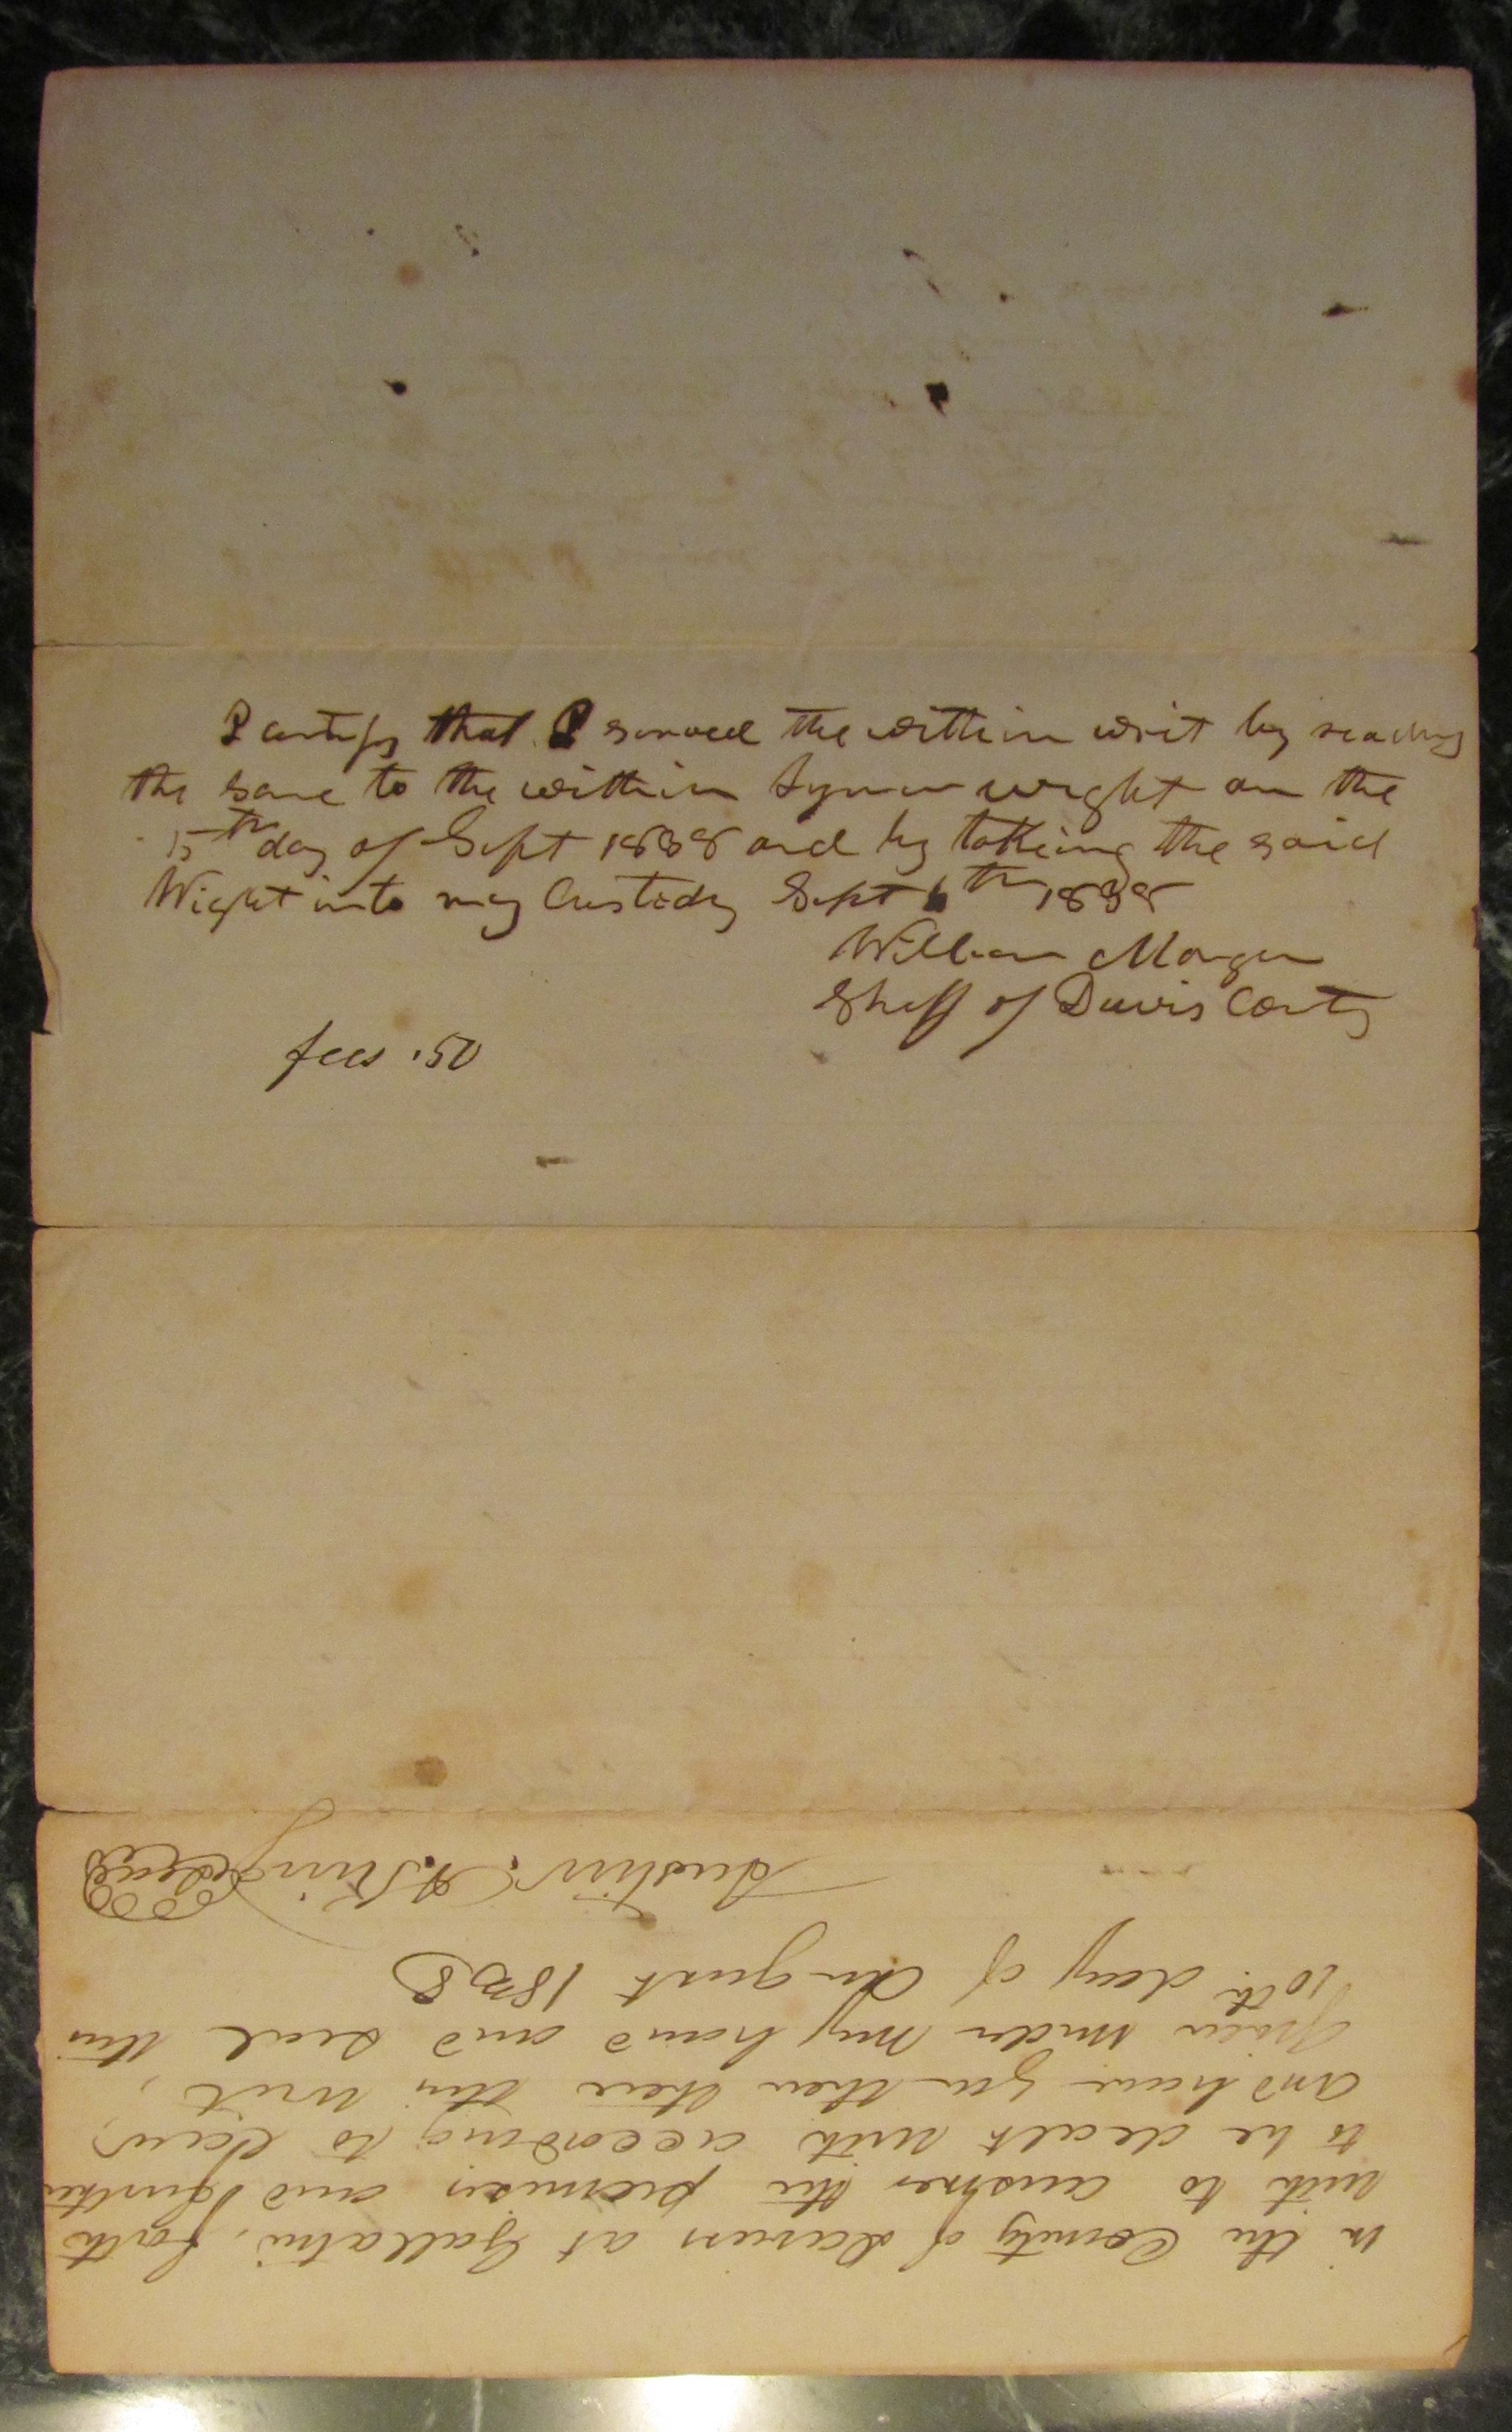 I certify that I served the within writ by reading
the same to the within Lyman wight on the
15th day of Sept 1838 and by takeing the said
Wight into my Custody Sept th 1838
William Morgan
Sheff of Davis Conty
fees .50
in the County of Daviess at Gallatin, forth
with to answer the premises and further
to be dealt with according to Law,
And have you then there this writ,
Given under my hand and seal this
10th day of August 1838
Austin A. King seal